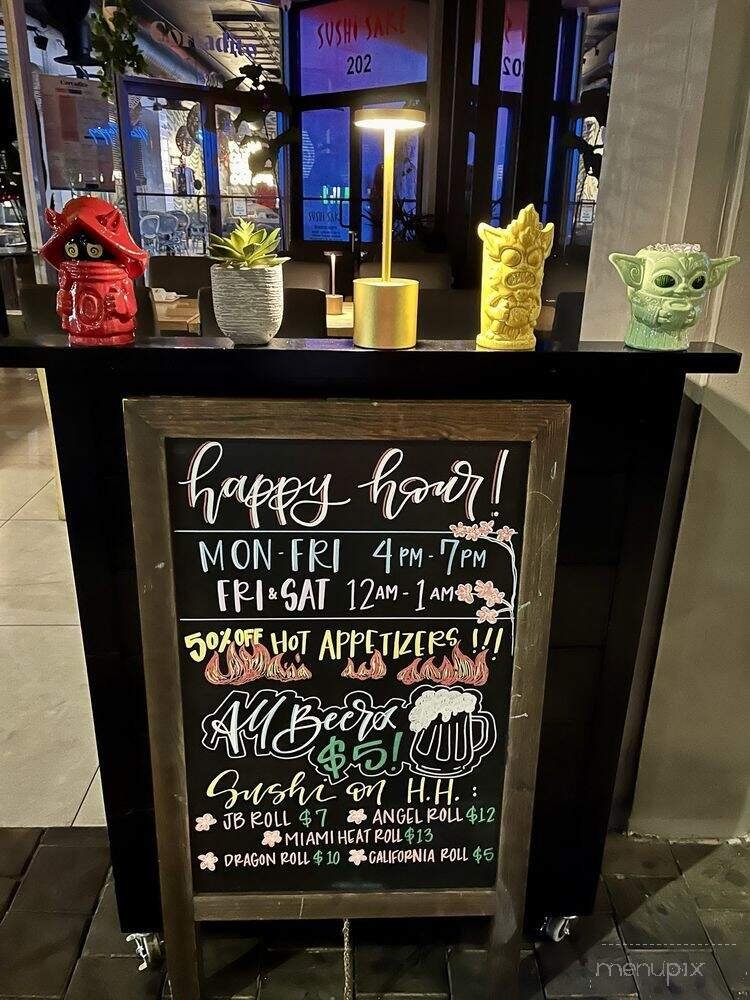 SUSHI SAKE
202
Cortadito
Cortadito
SUSHI SAKE
happy hour!
MON-FRI 4PM-7PM
FRI & SAT 12AM-1AM
50% OFF HOT APPETIZERS !!!
All Beers
$5!
Sushi on H.H.:
JB ROLL $7 ANGEL ROLL $12
MIAMI HEAT ROLL $13
DRAGON ROLL $10 CALIFORNIA ROLL $5
menupix